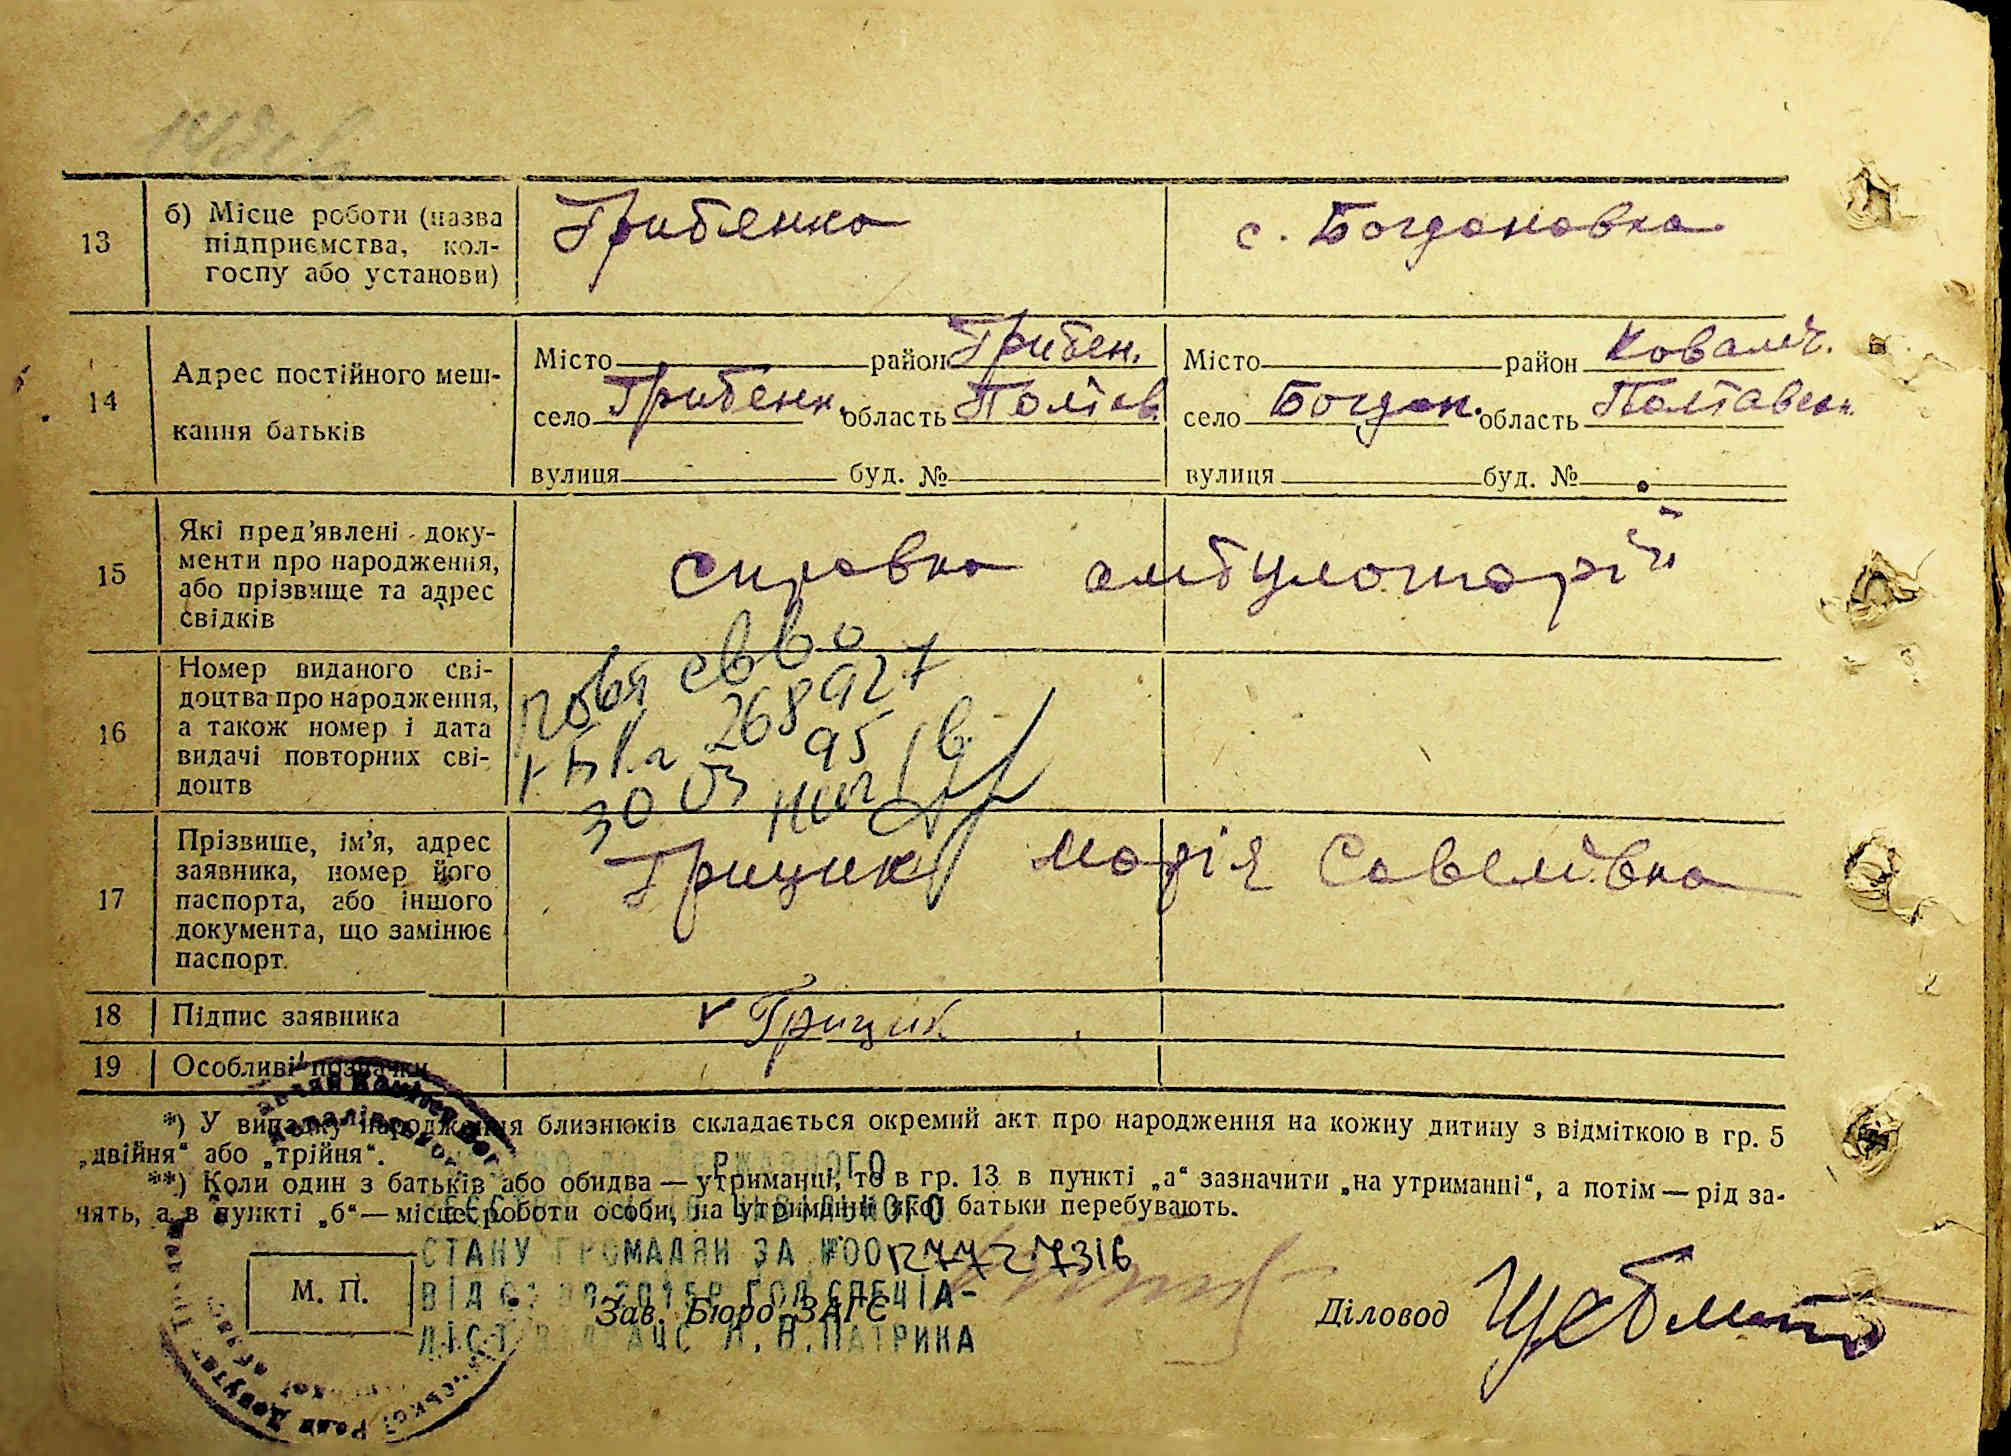 13
б) Місце роботи (назва
підприємства, кол-
госпу або установи)
Грибенка
с. Богдановка
14
Адрес постійного меш-
кання батьків
Місто район Грибен.
село Грибенк. область Полтав.
вулиця буд. №
Місто район Коваліч.
село Богдан. область Полтавськ.
вулиця буд. №
15
Які пред'явлені доку-
менти про народження,
або прізвище та адрес
свідків
справка амбулоторії
16
Номер виданого сві-
доцтва про народження,
а також номер і дата
видачі повторних сві-
доцтв
268927
30 03 95
17
Прізвище, ім'я, адрес
заявника, номер його
паспорта, або іншого
документа, що замінює
паспорт.
Грицик Марія Савеліївна
18
Підпис заявника
Грицик
19
Особливі позначки
*) У випадку народження близнюків складається окремий акт про народження на кожну дитину з відміткою в гр. 5
„двійня“ або „трійня“.
**) Коли один з батьків або обидва — утриманці, то в гр. 13 в пункті „а“ зазначити „на утриманні“, а потім — рід за-
нять, а в пункті „б“ — місце роботи особи, на утриманні якої батьки перебувають.
ДЕРЖАВНОГО
ЦИВІЛЬНОГО
СТАНУ ГРОМАДЯН ЗА №00127727316
ВІД ГОЛ.СПЕЦІА-
ЛІСТ ПАТРИКА
М. П.
Зав. Бюро ЗАГС
Діловод